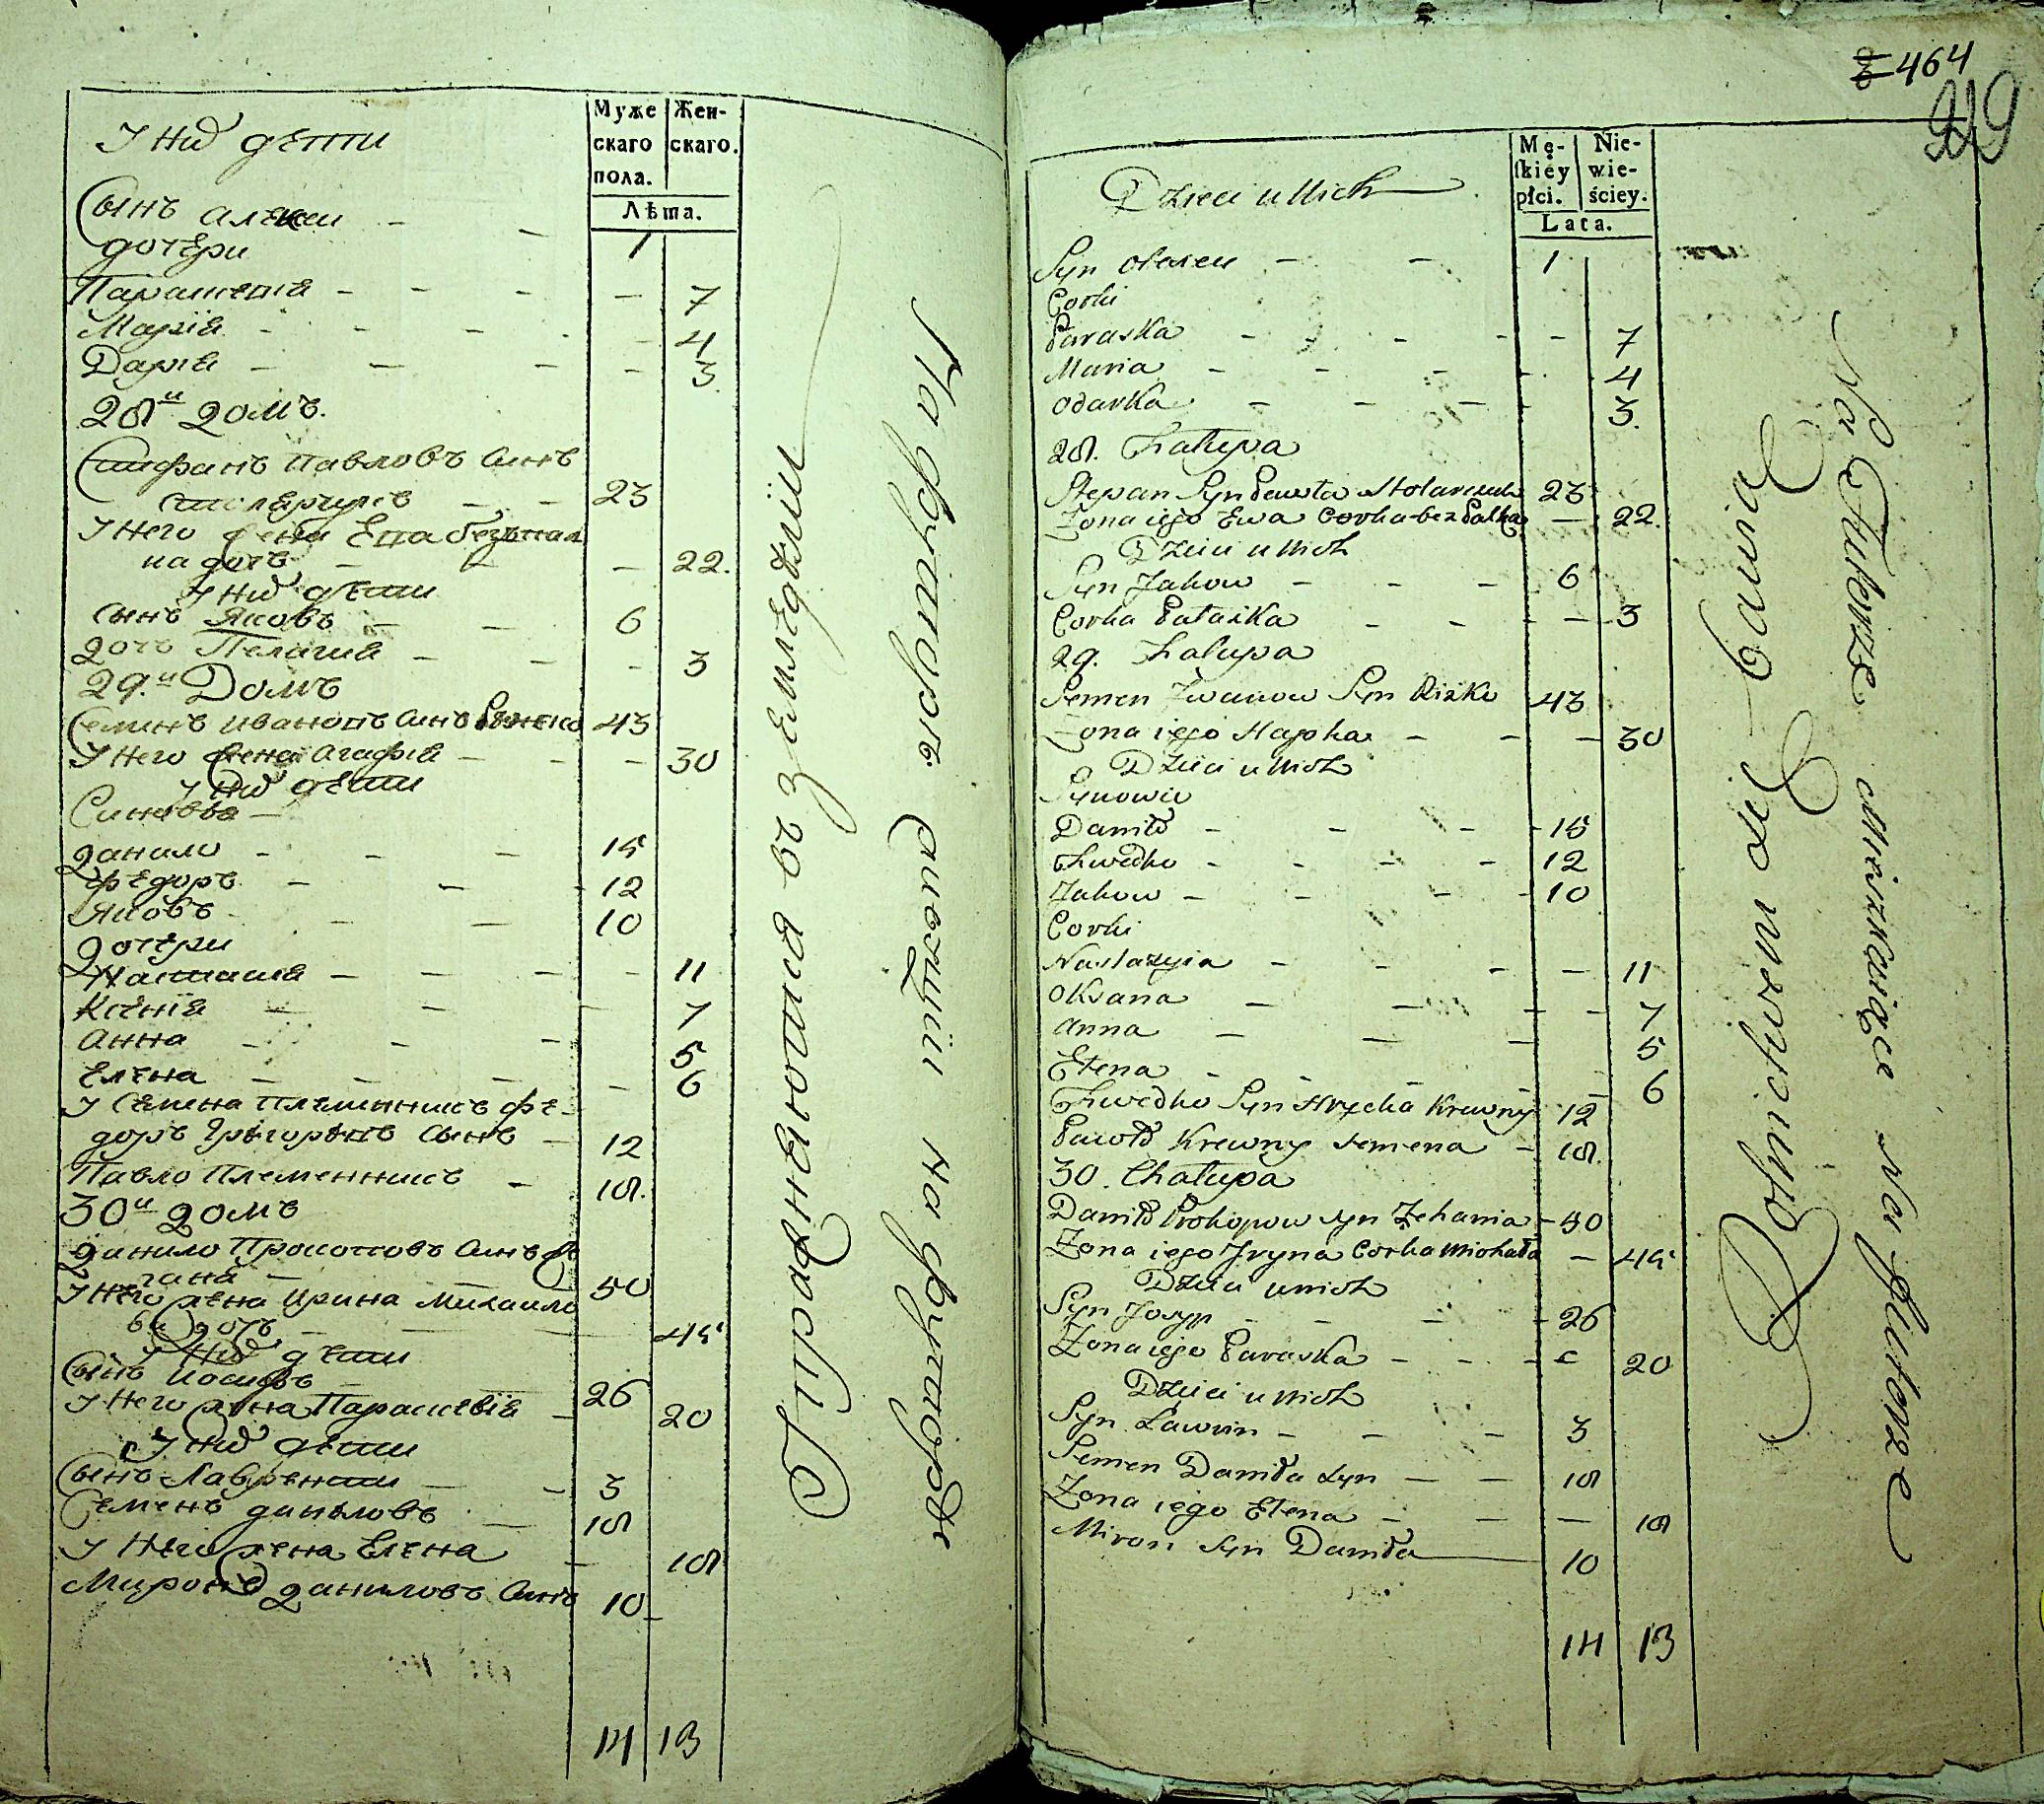 У них дети
Муже
скаго
пола.
Жен-
скаго.
Лѣта.
Сынъ Алексѣи - - 1
дочери
Параскевiя - - - - 7
Марiя - - - - 4
Дарiя - - - - 3.
28й домъ.
Стифанъ Павловъ Синъ
Столярчукъ - - 23
У Него жена Ева безъпал
на дочь - - 22.
У них дети
Сынъ Яковъ - - 6
дочь Пелагия - - - 3
29.й Домъ
Семенъ Ивановъ Синъ 43
У Него жена Агафiя - - - 30
У них дети
Синовья -
данило - - - 15
Федоръ - - - 12
Яковъ - - 10
дочери
Настасiя - - - - 11
Ксенiя - - - 7
Анна - - - 5
Елена - - - - 6
У Семена Племенникъ Фе-
доръ Григорьевъ Сынъ - 12
Павло Племенникъ - 18.
30й домъ
данило Прокоповъ Синъ Же
гана - 50
У Него жена Ирина Михаило
ва дочь - - 45
У Них дети
Сынъ Иосифъ - 26
У Него жена Параскевiя - 20
У них дети
Сынъ Лаврентии - - 3
Семенъ даниловъ - 18
У Него жена Елена - 18
Миронъ даниловъ Синъ 10
14 13
Упражняются въ земледѣлiи
На футорѣ живущiи на футорѣ
464
Dzieci u Nich
Mę-
skiéy
płci.
Nie-
wie-
ściey.
Lata.
Syn Olexey - - 1
Corki
Paraska - - - - 7
Maria - - - - 4
Odarka - - - - 3.
28. Chałupa
Stepan Syn Pawła Stolarczuk 23
Zona iego Ewa Corka - 22.
Dzieci u Nich
Syn Jakow - - - 6
Corka Pałaźka - - - - 3
29. Chałupa
Semen Iwanow Syn 43
Zona iego Hapka - - - 30
Dzieci u Nich
Synowie
Daniło - - - - 15
Chwedko - - - - 12
Jakow - - - - 10
Corki
Nastazyia - - - - 11
Oksana - - - - 7
Anna - - - 5
Ełena - - - - 6
Chwedko Syn Hrycka Krewny 12
Pawło Krewny Semena - 18.
30. Chałupa
Daniło Prokopow syn Zehania - 50
Zona iego Iryna Corka Michała - 45
Dzieci u nich
Syn Josyp - - - - 26
Zona iego Paraska - - - 20
Dzieci u Nich
Syn Ławrin - - - 3
Semen Daniła syn - - 18
Zona iego Ełena - - - 18
Miron Syn Daniła 10
14 13
Rolnictwem się bawią
Na Futorze Mieszkaiące Na Futorze